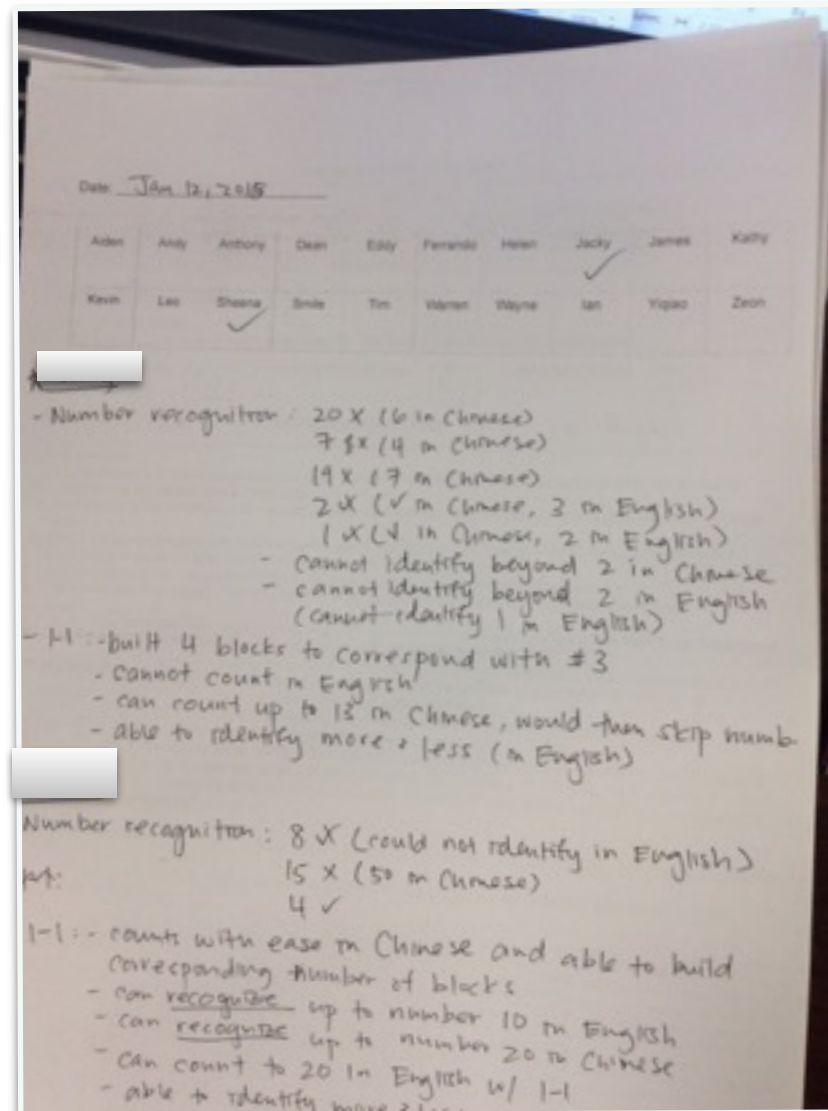 Date: Jan 12, 2015
Aiden Andy Anthony Dean Eddy Fernando Helen Jacky James Kathy
✓
Kevin Leo Sheena Smile Tim Warren Wayne Ian Yiqiao Zeon
✓
- Number recognition: 20 X (6 in Chinese)
7 X (4 in Chinese)
19 X (7 in Chinese)
2 X (✓ in Chinese, 3 in English)
1 X (✓ in Chinese, 2 in English)
- cannot identify beyond 2 in Chinese
- cannot identify beyond 2 in English
(cannot identify 1 in English)
- 1-1: - built 4 blocks to correspond with #3
- cannot count in English
- can count up to 13 in Chinese, would then skip numb
- able to identify more & less (in English)
Number recognition: 8 X (could not identify in English)
15 X (50 in Chinese)
4 ✓
1-1: - counts with ease in Chinese and able to build
corresponding number of blocks
- can recognize up to number 10 in English
- can recognize up to number 20 in Chinese
- can count to 20 in English w/ 1-1
- able to identify more